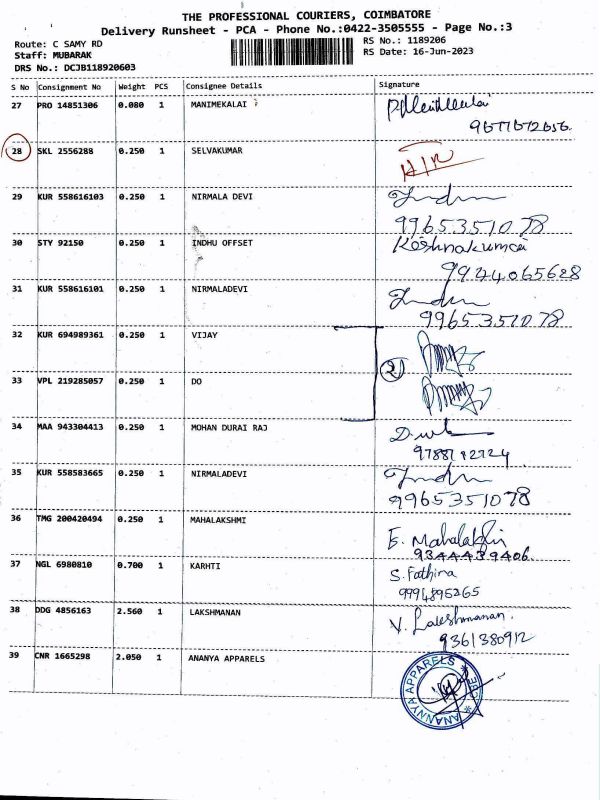 THE PROFESSIONAL COURIERS, COIMBATORE
Delivery Runsheet - PCA - Phone No.:0422-3505555 - Page No.:3
Route: C SAMY RD
RS No.: 1189206
Staff: MUBARAK
RS Date: 16-Jun-2023
DRS No.: DCJB118920603
S No Consignment No Weight PCS Consignee Details Signature
27 PRO 14851306 0.080 1 MANIMEKALAI
9677672656
28 SKL 2556288 0.250 1 SELVAKUMAR
29 KUR 558616103 0.250 1 NIRMALA DEVI
9965351078
30 STY 92150 0.250 1 INDHU OFFSET
9944065628
31 KUR 558616101 0.250 1 NIRMALADEVI
9965351078
32 KUR 694989361 0.250 1 VIJAY
2
33 VPL 219285057 0.250 1 DO
34 MAA 943304413 0.250 1 MOHAN DURAI RAJ
35 KUR 558583665 0.250 1 NIRMALADEVI
9965351078
36 TMG 200420494 0.250 1 MAHALAKSHMI
E. Mahalakshmi
9344439406
37 NGL 6980810 0.700 1 KARHTI
S. Fathima
9994895265
38 DDG 4856163 2.560 1 LAKSHMANAN
V. Lakshmanan.
9361380912
39 CNR 1665298 2.050 1 ANANYA APPARELS
ANANNYA APPARELS